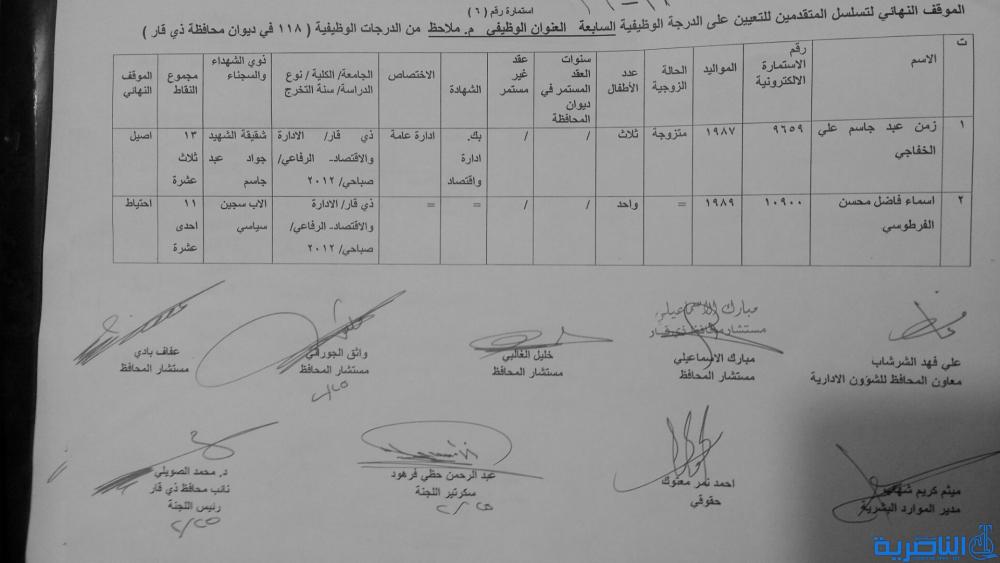 استمارة رقم (٦)
الموقف النهائي لتسلسل المتقدمين للتعيين على الدرجة الوظيفية السابعة العنوان الوظيفي م. ملاحظ من الدرجات الوظيفية ( ١١٨ في ديوان محافظة ذي قار )
ت
الاسم
رقم الاستمارة الالكترونية
المواليد
الحالة الزوجية
عدد الأطفال
سنوات العقد المستمر في ديوان المحافظة
عقد غير مستمر
الشهادة
الاختصاص
الجامعة/ الكلية / نوع الدراسة/ سنة التخرج
ذوي الشهداء والسجناء
مجموع النقاط
الموقف النهائي
١ زمن عبد جاسم علي الخفاجي ٩٦٥٩ ١٩٨٧ متزوجة ثلاث / / بك. ادارة واقتصاد ادارة عامة ذي قار/ الادارة والاقتصاد- الرفاعي/ صباحي/ ٢٠١٢ شقيقة الشهيد جواد عبد جاسم ١٣ ثلاث عشرة اصيل
٢ اسماء فاضل محسن الفرطوسي ١٠٩٠٠ ١٩٨٩ = واحد / / = = ذي قار/ الادارة والاقتصاد- الرفاعي/ صباحي/ ٢٠١٢ الاب سجين سياسي ١١ احدى عشرة احتياط
مبارك الاسماعيلي
مستشار محافظ ذي قار
علي فهد الشرشاب
معاون المحافظ للشؤون الادارية
مبارك الاسماعيلي
مستشار المحافظ
خليل الغالبي
مستشار المحافظ
واثق الجوراني
مستشار المحافظ
عفاف بادي
مستشار المحافظ
ميثم كريم
مدير الموارد البشرية
احمد ثمر معتوك
حقوقي
عبد الرحمن حظي فرهود
سكرتير اللجنة
د. محمد الصويلي
نائب محافظ ذي قار
رئيس اللجنة
الناصرية